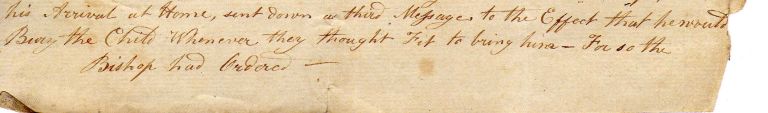 his Arrival at Home, sent down a third Message to the Effect that he would
Bury the Child Whenever they thought Fit to bring him – For so the
Bishop had Ordered —